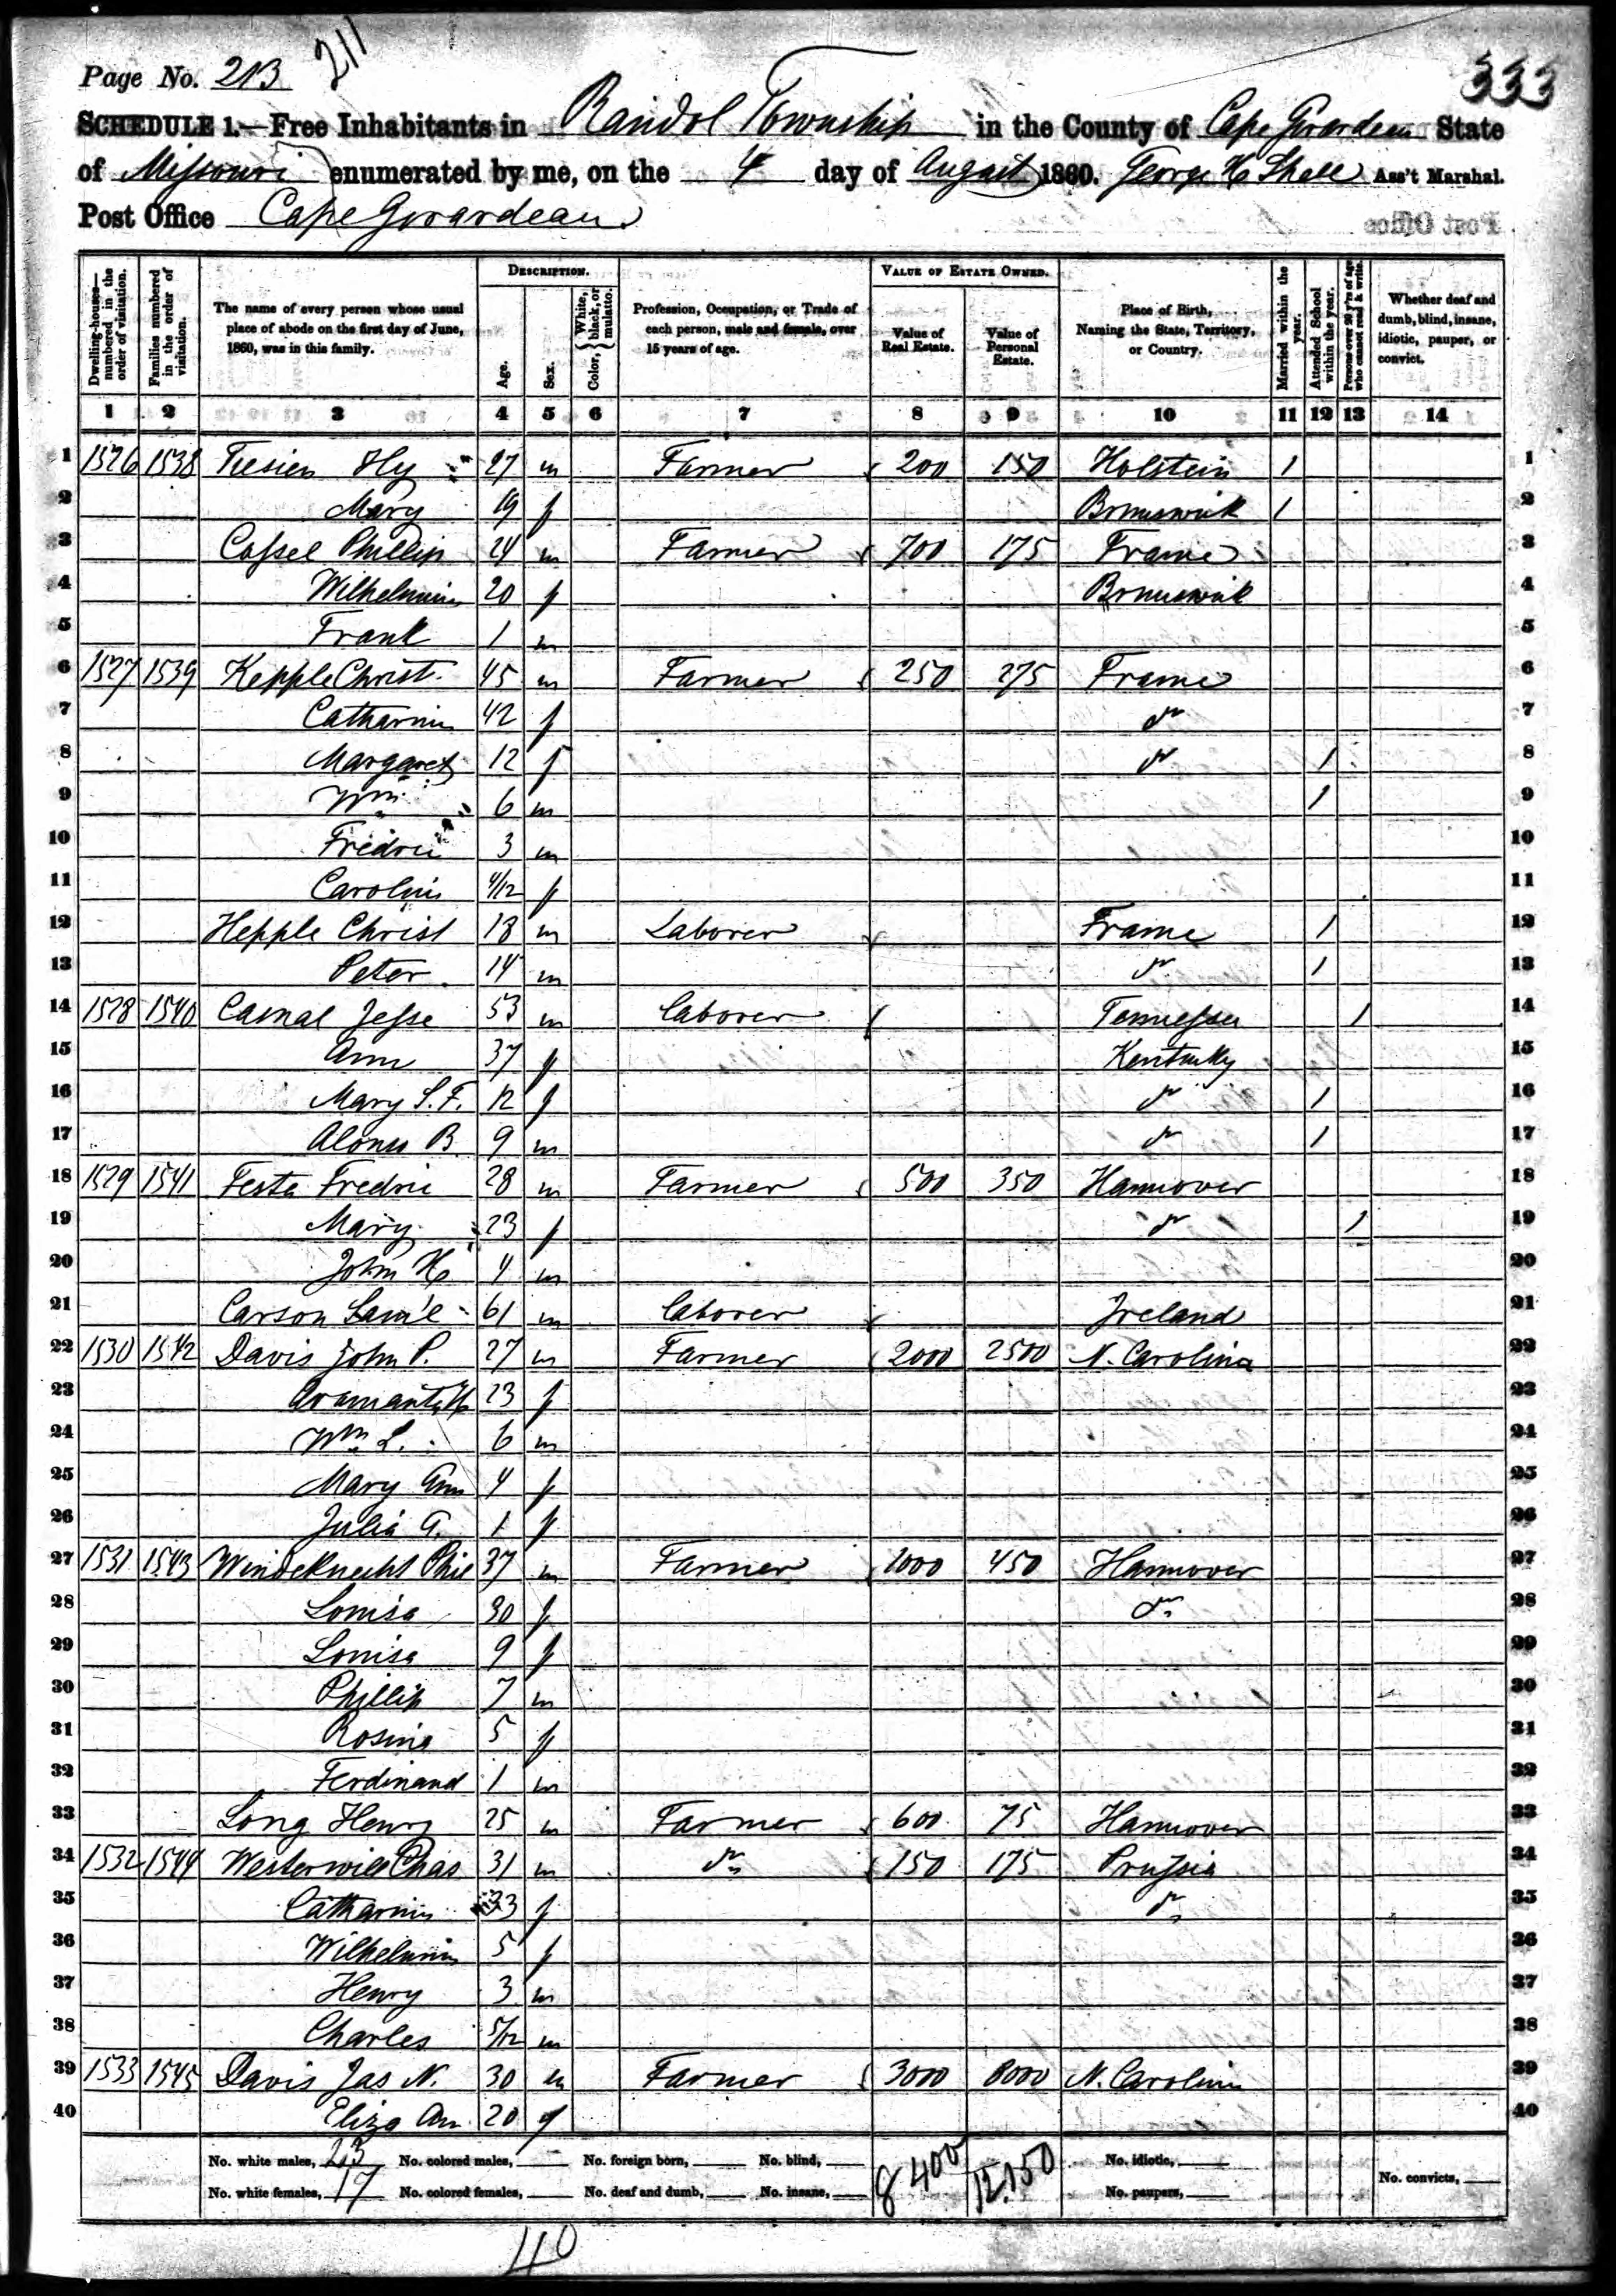 Page No. 213 211
333
SCHEDULE 1.—Free Inhabitants in Randol Township in the County of Cape Girardeau State
of Missouri enumerated by me, on the 4 day of August 1860. George H Shall Ass't Marshal.
Post Office Cape Girardeau
Dwelling-houses—numbered in the order of visitation.
Families numbered in the order of visitation.
The name of every person whose usual place of abode on the first day of June, 1860, was in this family.
DESCRIPTION.
Age.
Sex.
Color, { White, black, or mulatto.
Profession, Occupation, or Trade of each person, male and female, over 15 years of age.
VALUE OF ESTATE OWNED.
Value of Real Estate.
Value of Personal Estate.
Place of Birth, Naming the State, Territory, or Country.
Married within the year.
Attended School within the year.
Persons over 20 y'rs of age who cannot read & write.
Whether deaf and dumb, blind, insane, idiotic, pauper, or convict.
1 2 3 4 5 6 7 8 9 10 11 12 13 14
1 1526 1538 Tiesien Hy 27 m Farmer 200 150 Holstein 1 1
2 Mary 19 f Brunswick 1 2
3 Cassel Phillip 24 m Farmer 700 175 France 3
4 Wilhelmina 20 f Brunswick 4
5 Frank 1 m 5
6 1527 1539 Kepple Christ. 45 m Farmer 250 275 France 6
7 Catharine 42 f do 7
8 Margaret 12 f do 1 8
9 Wm 6 m 1 9
10 Fredric 3 m 10
11 Caroline 4/12 f 11
12 Hepple Christ 18 m Laborer France 1 12
13 Peter 14 m do 1 13
14 1528 1540 Casnal Jesse 53 m Laborer Tennessee 1 14
15 Ann 37 f Kentucky 15
16 Mary S. F. 12 f do 1 16
17 Alonso B. 9 m do 1 17
18 1529 1541 Festa Fredric 28 m Farmer 500 350 Hannover 18
19 Mary 23 f do 1 19
20 John H 4 m 20
21 Carson Sam'l 61 m Laborer Ireland 21
22 1530 1542 Davis John P. 27 m Farmer 2000 2500 N. Carolina 22
23 Aramanta H 23 f 23
24 Wm L. 6 m 24
25 Mary Ann 4 f 25
26 Julia A. 1 f 26
27 1531 1543 Windeknecht Phil 37 m Farmer 1000 450 Hannover 27
28 Louisa 30 f do 28
29 Louisa 9 f 29
30 Phillip 7 m 30
31 Rosina 5 f 31
32 Ferdinand 1 m 32
33 Long Henry 25 m Farmer 600 75 Hannover 33
34 1532 1544 Westerwill Chas 31 m do 150 175 Prussia 34
35 Catharine 33 f do 35
36 Wilhelmina 5 f 36
37 Henry 3 m 37
38 Charles 5/12 m 38
39 1533 1545 Davis Jas N. 30 m Farmer 3000 8000 N. Carolina 39
40 Eliza An 20 f 40
No. white males, 23 No. colored males, No. foreign born, No. blind, 8400 12.150 No. idiotic,
No. white females, 17 No. colored females, No. deaf and dumb, No. insane, No. paupers, No. convicts,
40